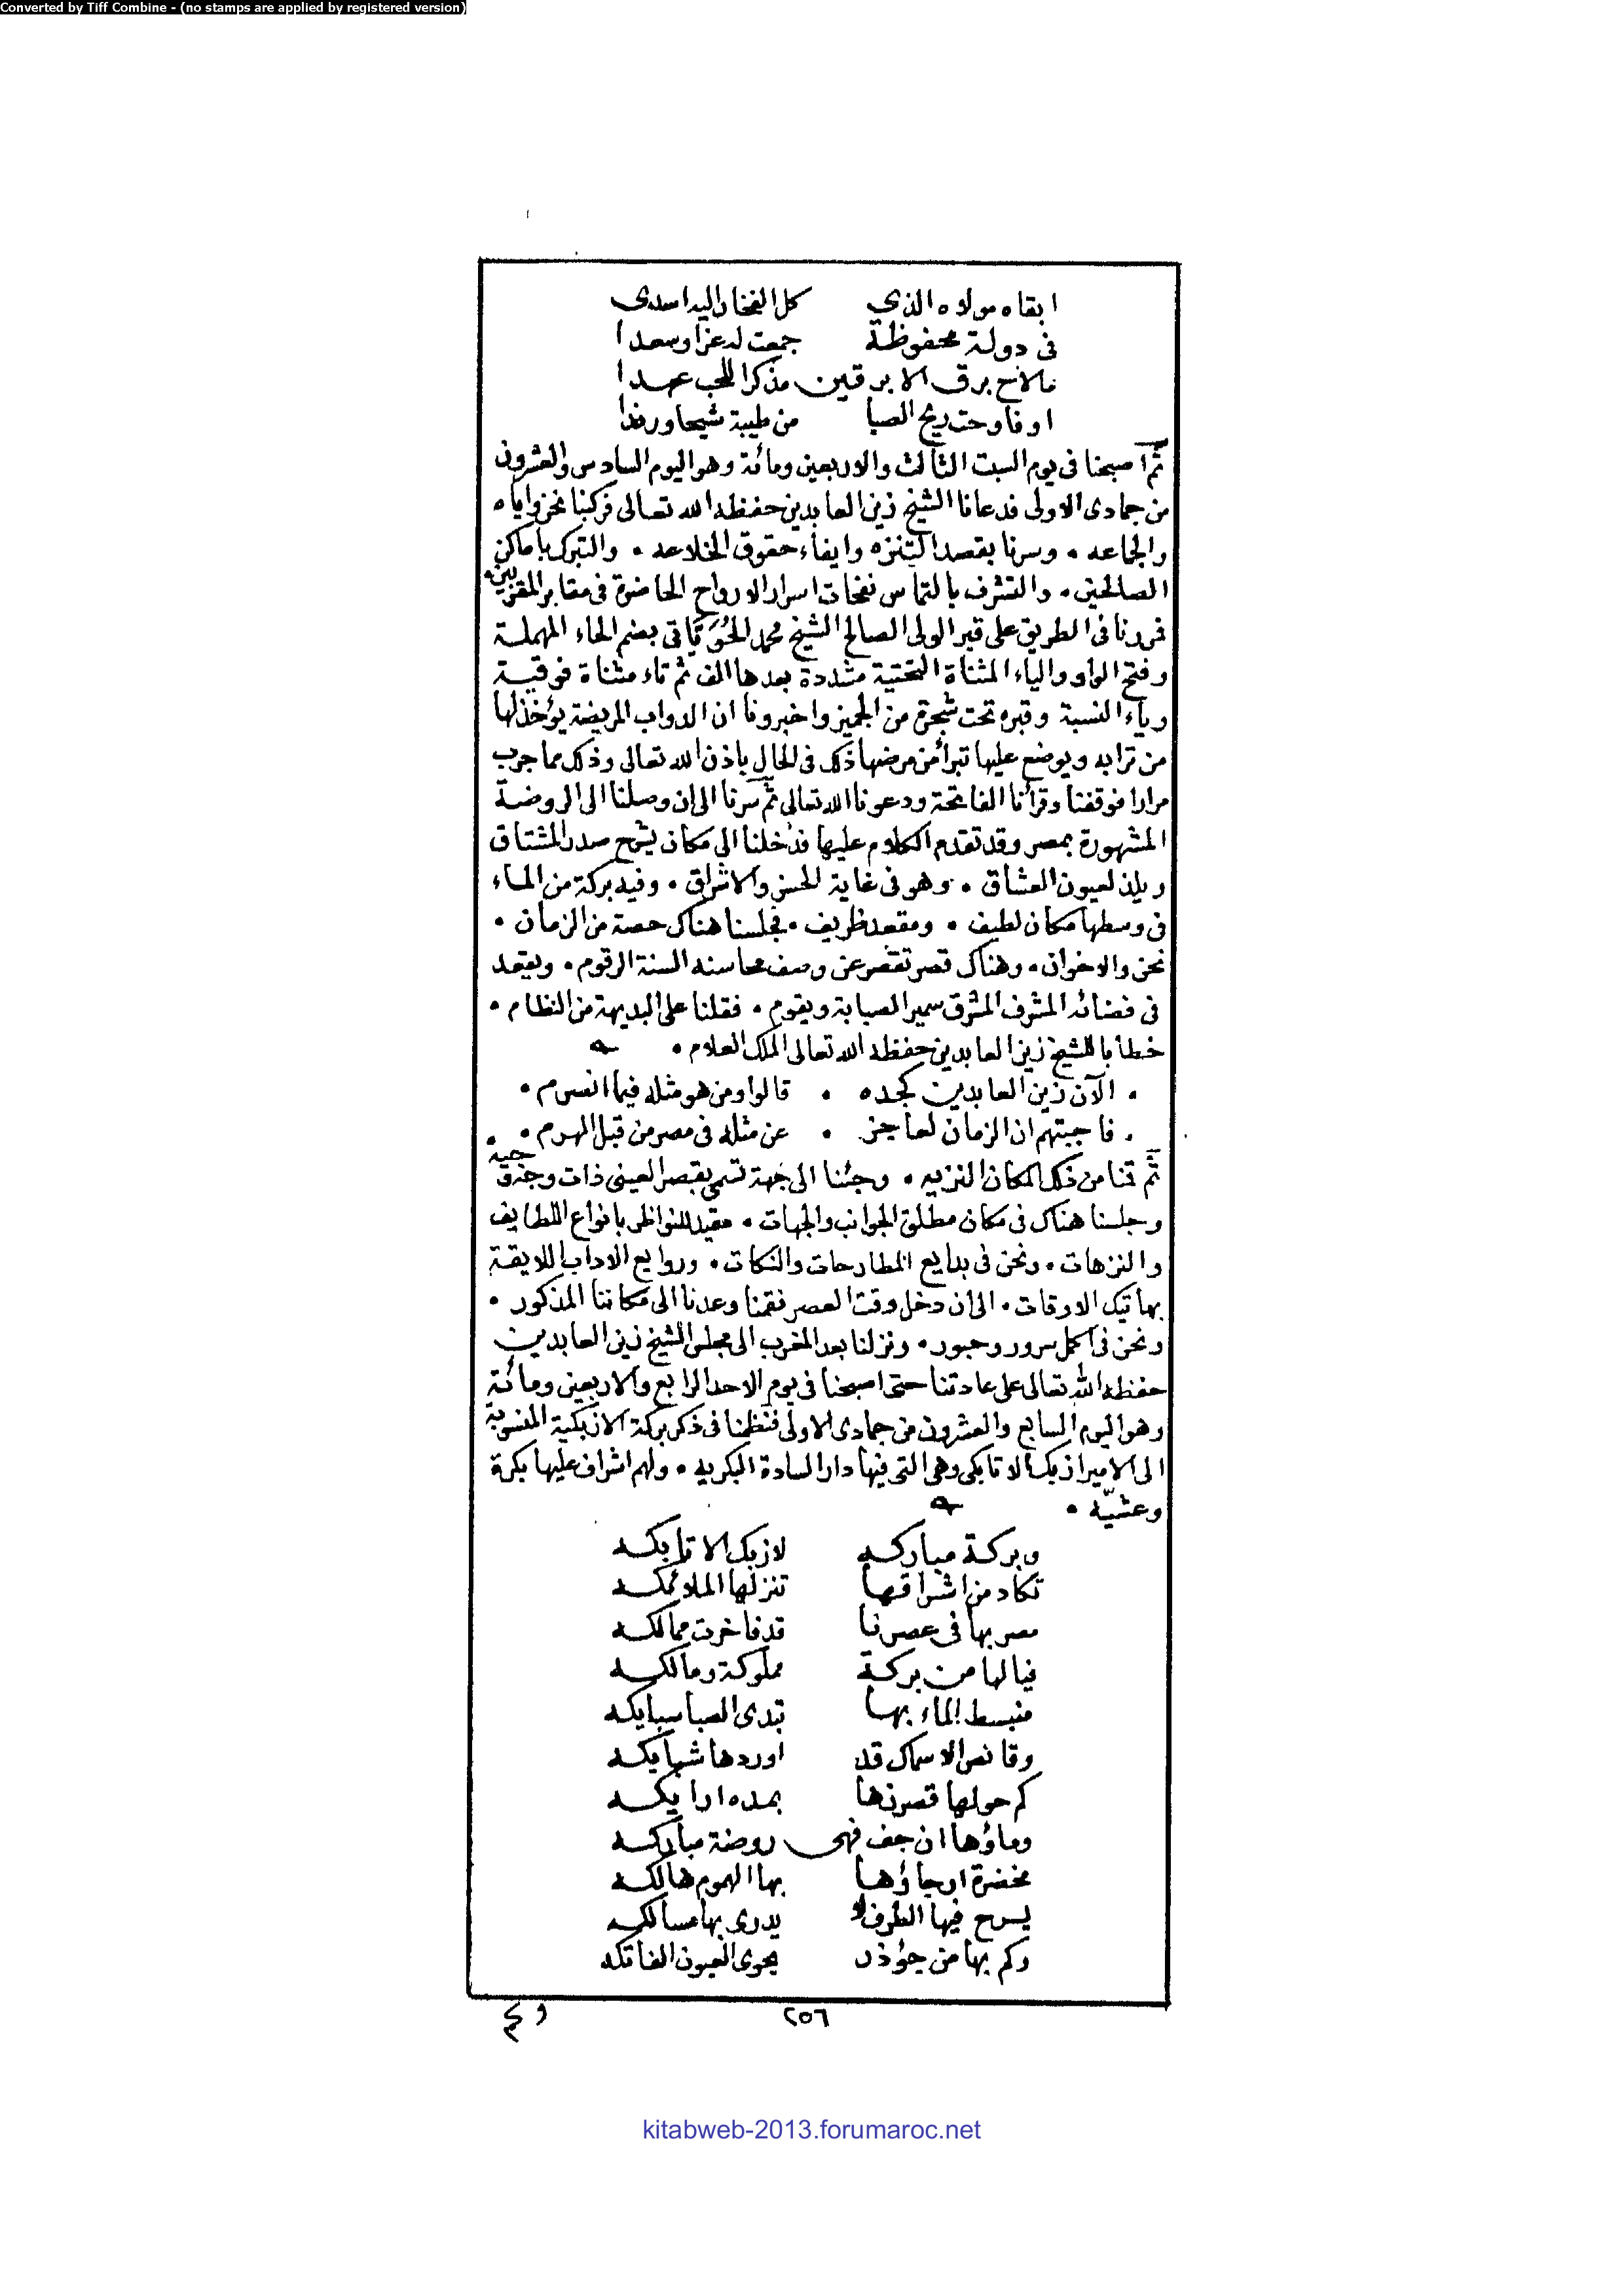 Converted by Tiff Combine - (no stamps are applied by registered version)
ابقاه مولاه الذي كل الفخار اليه اسدى
فى دولة محفوظة جمعت له عزا وسعدا
مالاح برق الابرقين مذكرا للحب عهدا
او فاوحت ريح الصبا من طيبة شيحا ورندا
ثم اصبحنا فى يوم السبت الثالث والاربعين ومائة وهو اليوم السادس والعشرون
من جمادى الاولى فدعانا الشيخ زين العابدين حفظه الله تعالى فركبنا نحن واياه
والجماعه • وسرنا بقصد التنزه وايفاء حقوق الخلاعه • والتبرك باماكن
الصالحين • والتشرف بالتماس نفحات اسرار الارواح الحاضرة فى مقابر المقربين •
فمررنا فى الطريق على قبر الولى الصالح الشيخ محمد الحُوَيَّاتى بضم الحاء المهملة
وفتح الواو والياء المثناة التحتية مشددة بعدها الف ثم تاء مثناة فوقية
وياء النسبة وقبره تحت شجرة من الجميز واخبرونا ان الدواب المريضة يؤخذ لها
من ترابه ويوضع عليها تبرأ من مرضها ذلك فى الحال باذن الله تعالى وذلك مما جرب
مرارا فوقفنا وقرأنا الفاتحة ودعونا الله تعالى ثم سرنا الى ان وصلنا الى الروضة
المشهورة بمصر وقد تقدم الكلام عليها فدخلنا الى مكان يشرح صدر المشتاق
ويلذ لعيون العشاق • وهو فى غاية الحسن والاشراق • وفيه بركة من الماء
فى وسطها مكان لطيف • ومقعد ظريف • فجلسنا هناك حصة من الزمان •
نحن والاخوان • وهناك قصر تقصر عن وصف محاسنه السنة الرقوم • ويقعد
فى فضائه المشرف المشرق سمير الصبابة ويقوم • فقلنا على البديهة من النظام •
خطابا للشيخ زين العابدين حفظه الله تعالى الملك العلام •
• الآن زين العابدين كجده • قالوا ومن هو مثله فيما انصرم •
• فاجبتهم ان الزمان لعاجز • عن مثله فى مصر من قبل الهرم •
ثم قمنا من ذلك المكان النزيه • وجئنا الى جهة تسمى بقصر العينى ذات وجنة وجيه
وجلسنا هناك فى مكان مطلق الجوانب والجهات • مقيد للنواظر بانواع اللطايف
والنزهات • ونحن فى بدايع المطارحات والنكات • وروايع الاداب اللايقة
بهاتيك الاوقات • الى ان دخل وقت العصر فقمنا وعدنا الى مكاننا المذكور •
ونحن فى اكمل سرور وحبور • ونزلنا بعد المغرب الى مجلس الشيخ زين العابدين
حفظه الله تعالى على عادتنا حتى اصبحنا فى يوم الاحد الرابع والاربعين ومائة
وهو اليوم السابع والعشرون من جمادى الاولى فنظمنا فى ذكر بركة الازبكية المنسوبة
الى الامير ازبك الاتابكى وهى التى فيها دار السادة البكريه • ولهم اشراف عليها بكرة
وعشيّه •
وبركة مباركه لازبك الاتابكه
تكاد من اشراقها تنزلها الملائكه
مصر بها فى عصرنا قد فاخرت ممالكه
فيا لها من بركة مملوكة ومالكه
منبسط الماء بها تبدى الصبا سبايكه
وقانص الاسماك قد اوردها شبايكه
كم حولها قصر زها بمده ارايكه
وماؤها ان جف فهى روضة مباركه
مخضرة ارجاؤها بها الهموم هالكه
يسرح فيها الطرف لا يدرى بها مسالكه
وكم بها من جؤذر يحوى العيون الفاتكه
وكم
٢٥٦
kitabweb-2013.forumaroc.net